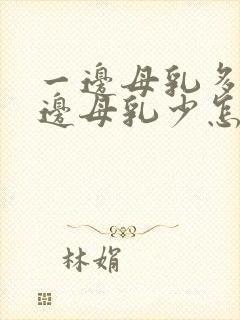 一邊母乳多
邊母乳少怎
林娟